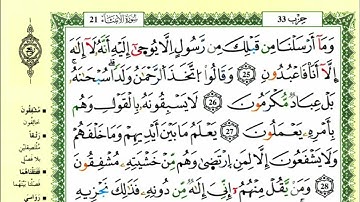 سُورَةُ الأَنبِيَاء 21
حزب 33
وَمَآ أَرْسَلْنَا مِن قَبْلِكَ مِن رَّسُولٍ إِلَّا يُوحَىٰٓ إِلَيْهِ أَنَّهُۥ لَآ إِلَٰهَ
إِلَّآ أَنَا۠ فَٱعْبُدُونِ 25 وَقَالُوا۟ ٱتَّخَذَ ٱلرَّحْمَٰنُ وَلَدًا سُبْحَٰنَهُۥ
بَلْ عِبَادٌ مُّكْرَمُونَ 26 لَا يَسْبِقُونَهُۥ بِٱلْقَوْلِ وَهُم
بِأَمْرِهِۦ يَعْمَلُونَ 27 يَعْلَمُ مَا بَيْنَ أَيْدِيهِمْ وَمَا خَلْفَهُمْ
وَلَا يَشْفَعُونَ إِلَّا لِمَنِ ٱرْتَضَىٰ وَهُم مِّنْ خَشْيَتِهِۦ مُشْفِقُونَ
28 وَمَن يَقُلْ مِنْهُمْ إِنِّىٓ إِلَٰهٌ مِّن دُونِهِۦ فَذَٰلِكَ نَجْزِيهِ
مُشْفِقُونَ
خَائِفُونَ
رَتْقًا
مُلْتَصِقَتَيْنِ
بلا فصل
فَفَتَقْنَاهُمَا
فَصَلْنَا بَيْنَهُمَا
رَوَاسِيَ